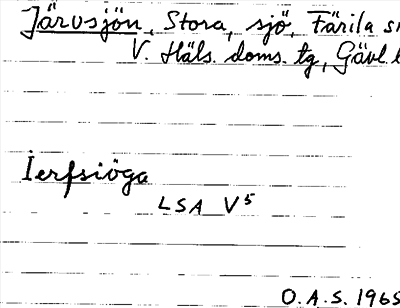 Järvsjön, Stora, sjö, Färila sn
V. Häls. doms. tg, Gävl. l
Ierfsiöga
LSA V⁵
O.A.S. 1965